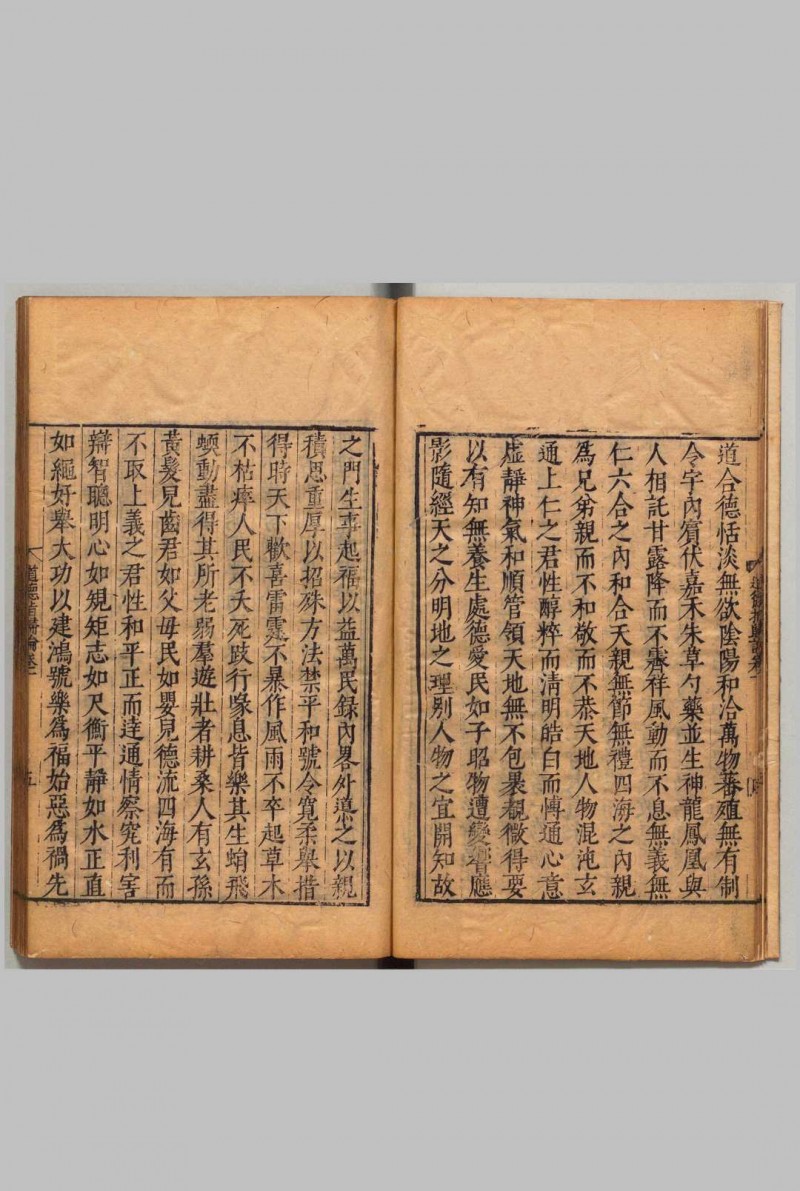 道合德恬淡無欲陰陽和洽萬物蕃殖無有制
令宇內賓伏嘉禾朱草勺藥並生神龍鳳凰與
人相託甘露降而不霽祥風動而不息無義無
仁六合之內和合天親無節無禮四海之內親
爲兄弟親而不和敬而不恭天地人物混沌玄
通上仁之君性醇粹而清明皓白而博通心意
虛靜神氣和順管領天地無不包裹覩微得要
以有知無養生處德愛民如子昭物遭變響應
影隨經天之分明地之理別人物之宜開知故
之門生事起福以益萬民錄內畧外導之以親
積思重厚以招殊方法禁平和號令寬柔舉措
得時天下歡喜雷霆不暴作風雨不卒起草木
不枯瘁人民不夭死跂行喙息皆樂其生蛸飛
蝡動盡得其所老弱羣遊壯者耕桑人有玄孫
黃髮兒齒君如父母民如嬰兒德流四海有而
不取上義之君性和平正而達通情察究利害
辯智聰明心如規矩志如尺衡平靜如水正直
如繩好舉大功以建鴻號樂爲福始惡爲禍先
道德指歸論卷一
五